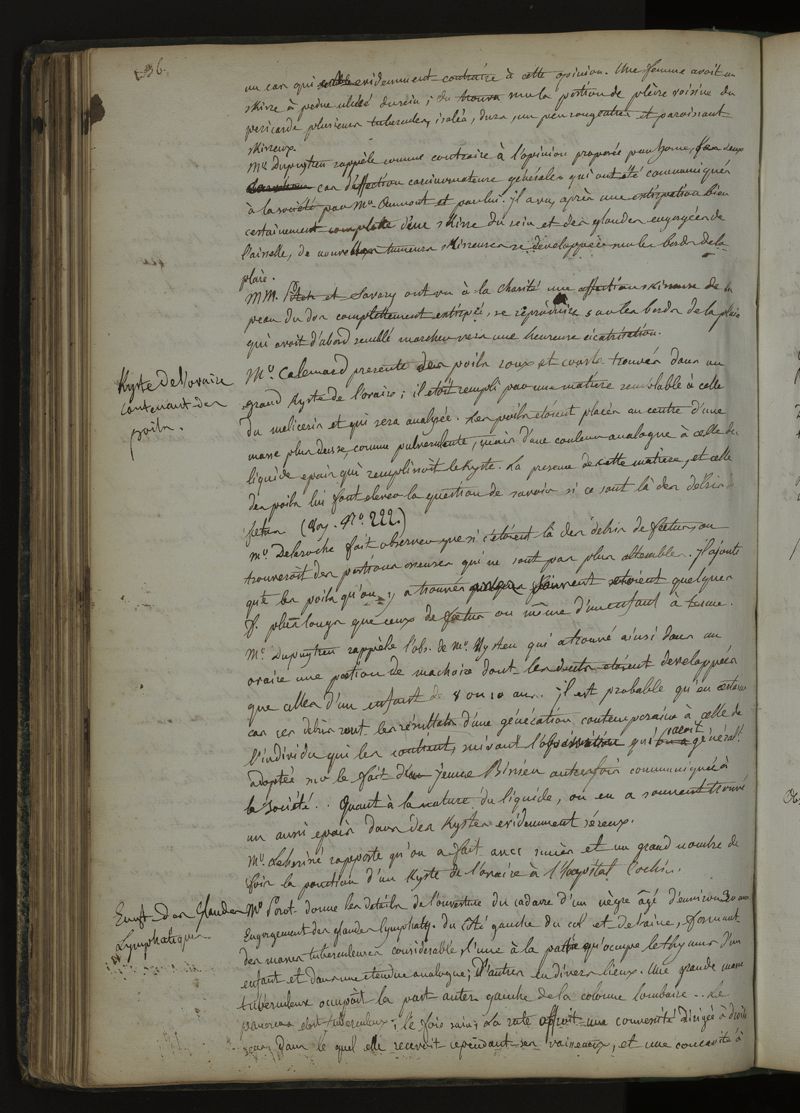 36.
un cas qui semble evidemment contraire à cette opinion. Une femme avoit un
skirre à peine ulcéré du sein; on trouva sur la portion de plèvre voisine du
pericarde plusieurs tubercules, isolés, durs, un peu rougeâtres et paroissant
skirreux.
Mr. Dupuytren rappèle comme contraire à l'opinion proposée par home, les deux
cas d'affection carcinomateuse générales qui ont été communiqués
à la société par Mr. et par lui. il a vu, après une extirpation bien
certainement complette d'un skirre du sein et des glandes engorgées de
l'aisselle, de nouvelles tumeurs skirreuses se développer sur les bords de la
plaie.
MM. et Savary ont vu à la charité une affection skirreuse de la
peau du dos complettement extirpée, se reproduire sur les bords de la plaie
qui avoit d'abord semblé marcher vers une heureuse cicatrisation.
Kyste de l'ovaire
contenant des
poils.
Mr. Calemard presente des poils roux et courts trouvés dans un
grand Kyste de l'ovaire; il etoit rempli par une matière semblable à celle
du meliceris et qui sera analysée. Les poils etoient placés au centre d'une
masse plus dense, comme pulverulente, mais d'une couleur analogue à celle du
liquide epais qui remplissoit le Kyste. La presence de cette matière, et celle
des poils lui font elever la question de savoir si ce sont là des debris de
fœtus (Voy. No. 222.)
Mr. Delaroche fait observer que si c'étoient là des débris de fœtus, on
trouveroit des portions osseuses qui ne sont pas plus alterables. il ajoute
que les poils qu'on y a trouvés souvent etoient quelques
f. plus longs que ceux de fœtus ou même d'un enfant à terme.
Mr. Dupuytren rappèle l'obs. de Mr. Nysten qui a trouvé ainsi dans un
ovaire une portion de machoire dont les dents etoient developpées
que celles d'un enfant de 8 ou 10 ans. il est probable qu'en certains
cas ces debris sont les résultats d'une génération contemporaine à celle de
l'individu qui les contient, suivant l'observation qui seroit générallt.
adoptée sur le fait d'un jeune Bissieu autrefois communiqué à
la Société. Quant à la nature du liquide, on en a souvent trouvé
un aussi epais dans des Kystes evidemment séreux.
Mr. rapporte qu'on a fait avec succès et un grand nombre de
fois la ponction d'un Kyste de l'ovaire à l'hopital Cochin.
Engt. des Glandes
Lymphatiques
Mr. donne les details de l'ouverture du cadavre d'un nègre âgé d'environ 30 ans
Engorgement des glandes lymphatq. du côté gauche du col et de l'aine, formant
des masses tuberculeuses considérables, l'une à la partie qu'occupe le thymus d'un
enfant et dans une etendue analogue; d'autres en divers lieux. Une grande masse
tuberculeuse occupoit la part. anterre. gauche de la colonne lombaire. Le
pancreas etoit tuberculeux; le foie sain; la rate offroit une convexité dirigée à droite
dans le quel elle recevoit cependant ses vaisseaux, et une concavité à